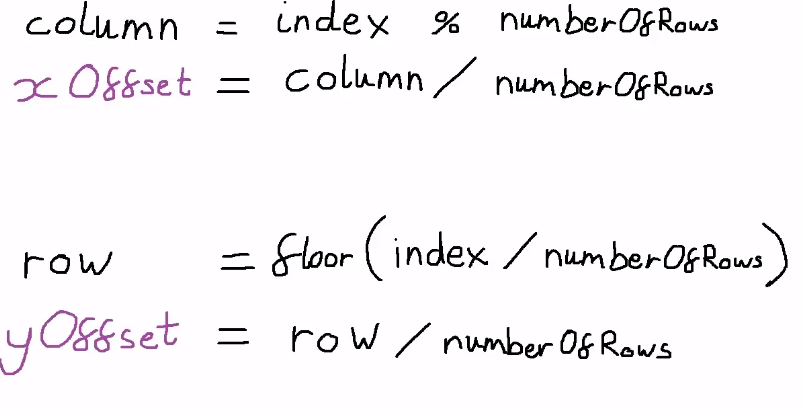 column = index % numberOfRows
xOffset = column / numberOfRows
row = floor(index / numberOfRows)
yOffset = row / numberOfRows